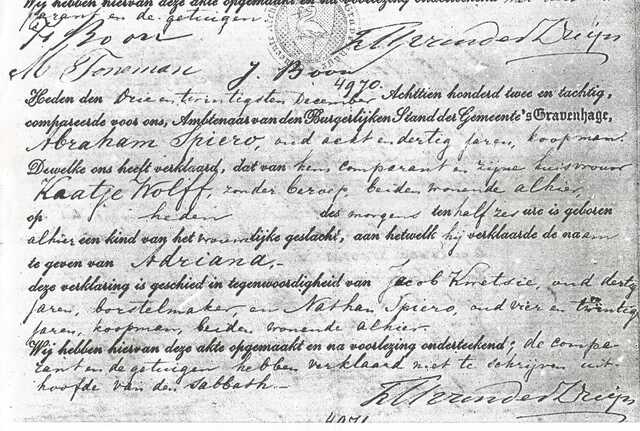 Wij hebben hiervan deze akte opgemaakt en na voorlezing onderteekend met den
parant en de getuigen.
F Boon
M Toneman J. Boon
4970.
Heden den Drie en twintigsten December Achttien honderd twee en tachtig,
compareerde voor ons, Ambtenaar van den Burgerlijken Stand der Gemeente 's Gravenhage,
Abraham Spiero, oud acht en dertig jaren, koopman.
Dewelke ons heeft verklaard, dat van hem comparant en zijne huisvrouw
Kaatje Wolff, zonder beroep, beiden wonende alhier,
op heden des morgens ten half zes ure is geboren
alhier een kind van het vrouwelijke geslacht, aan hetwelk hij verklaarde de naam
te geven van Adriana.-
deze verklaring is geschied in tegenwoordigheid van Jacob Kmetsie, oud dertig
jaren, borstelmaker, en Nathan Spiero, oud vier en twintig
jaren, koopman, beiden wonende alhier.
Wij hebben hiervan deze akte opgemaakt en na voorlezing onderteekend; de compa-
rant en de getuigen hebben verklaard niet te schrijven uit-
hoofde van den sabbath.-
4971